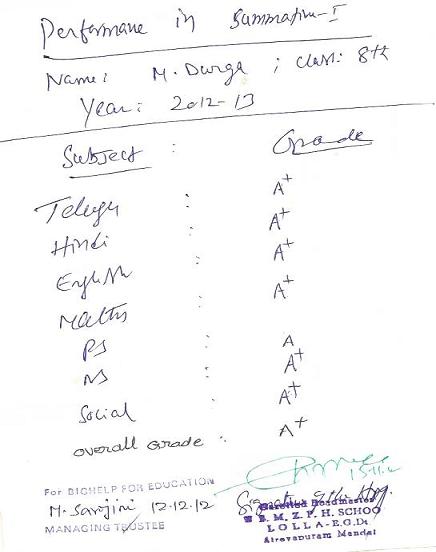 Performane in Summative-I
Name: M. Durga ; class: 8th
Year: 2012-13
Subject : Grade
Telugu : A+
Hindi : A+
English : A+
Maths : A+
PS : A
NS : A+
Social : A+
overall Grade : A+
15.11.12
For BIGHELP FOR EDUCATION
M. Sarojini 12.12.12
MANAGING TRUSTEE
Signature of the Hm.
Gazetted Headmaster
M. Z. P. H. SCHOO
LOLLA-E.G.Dt
Atreyapuram Mandal